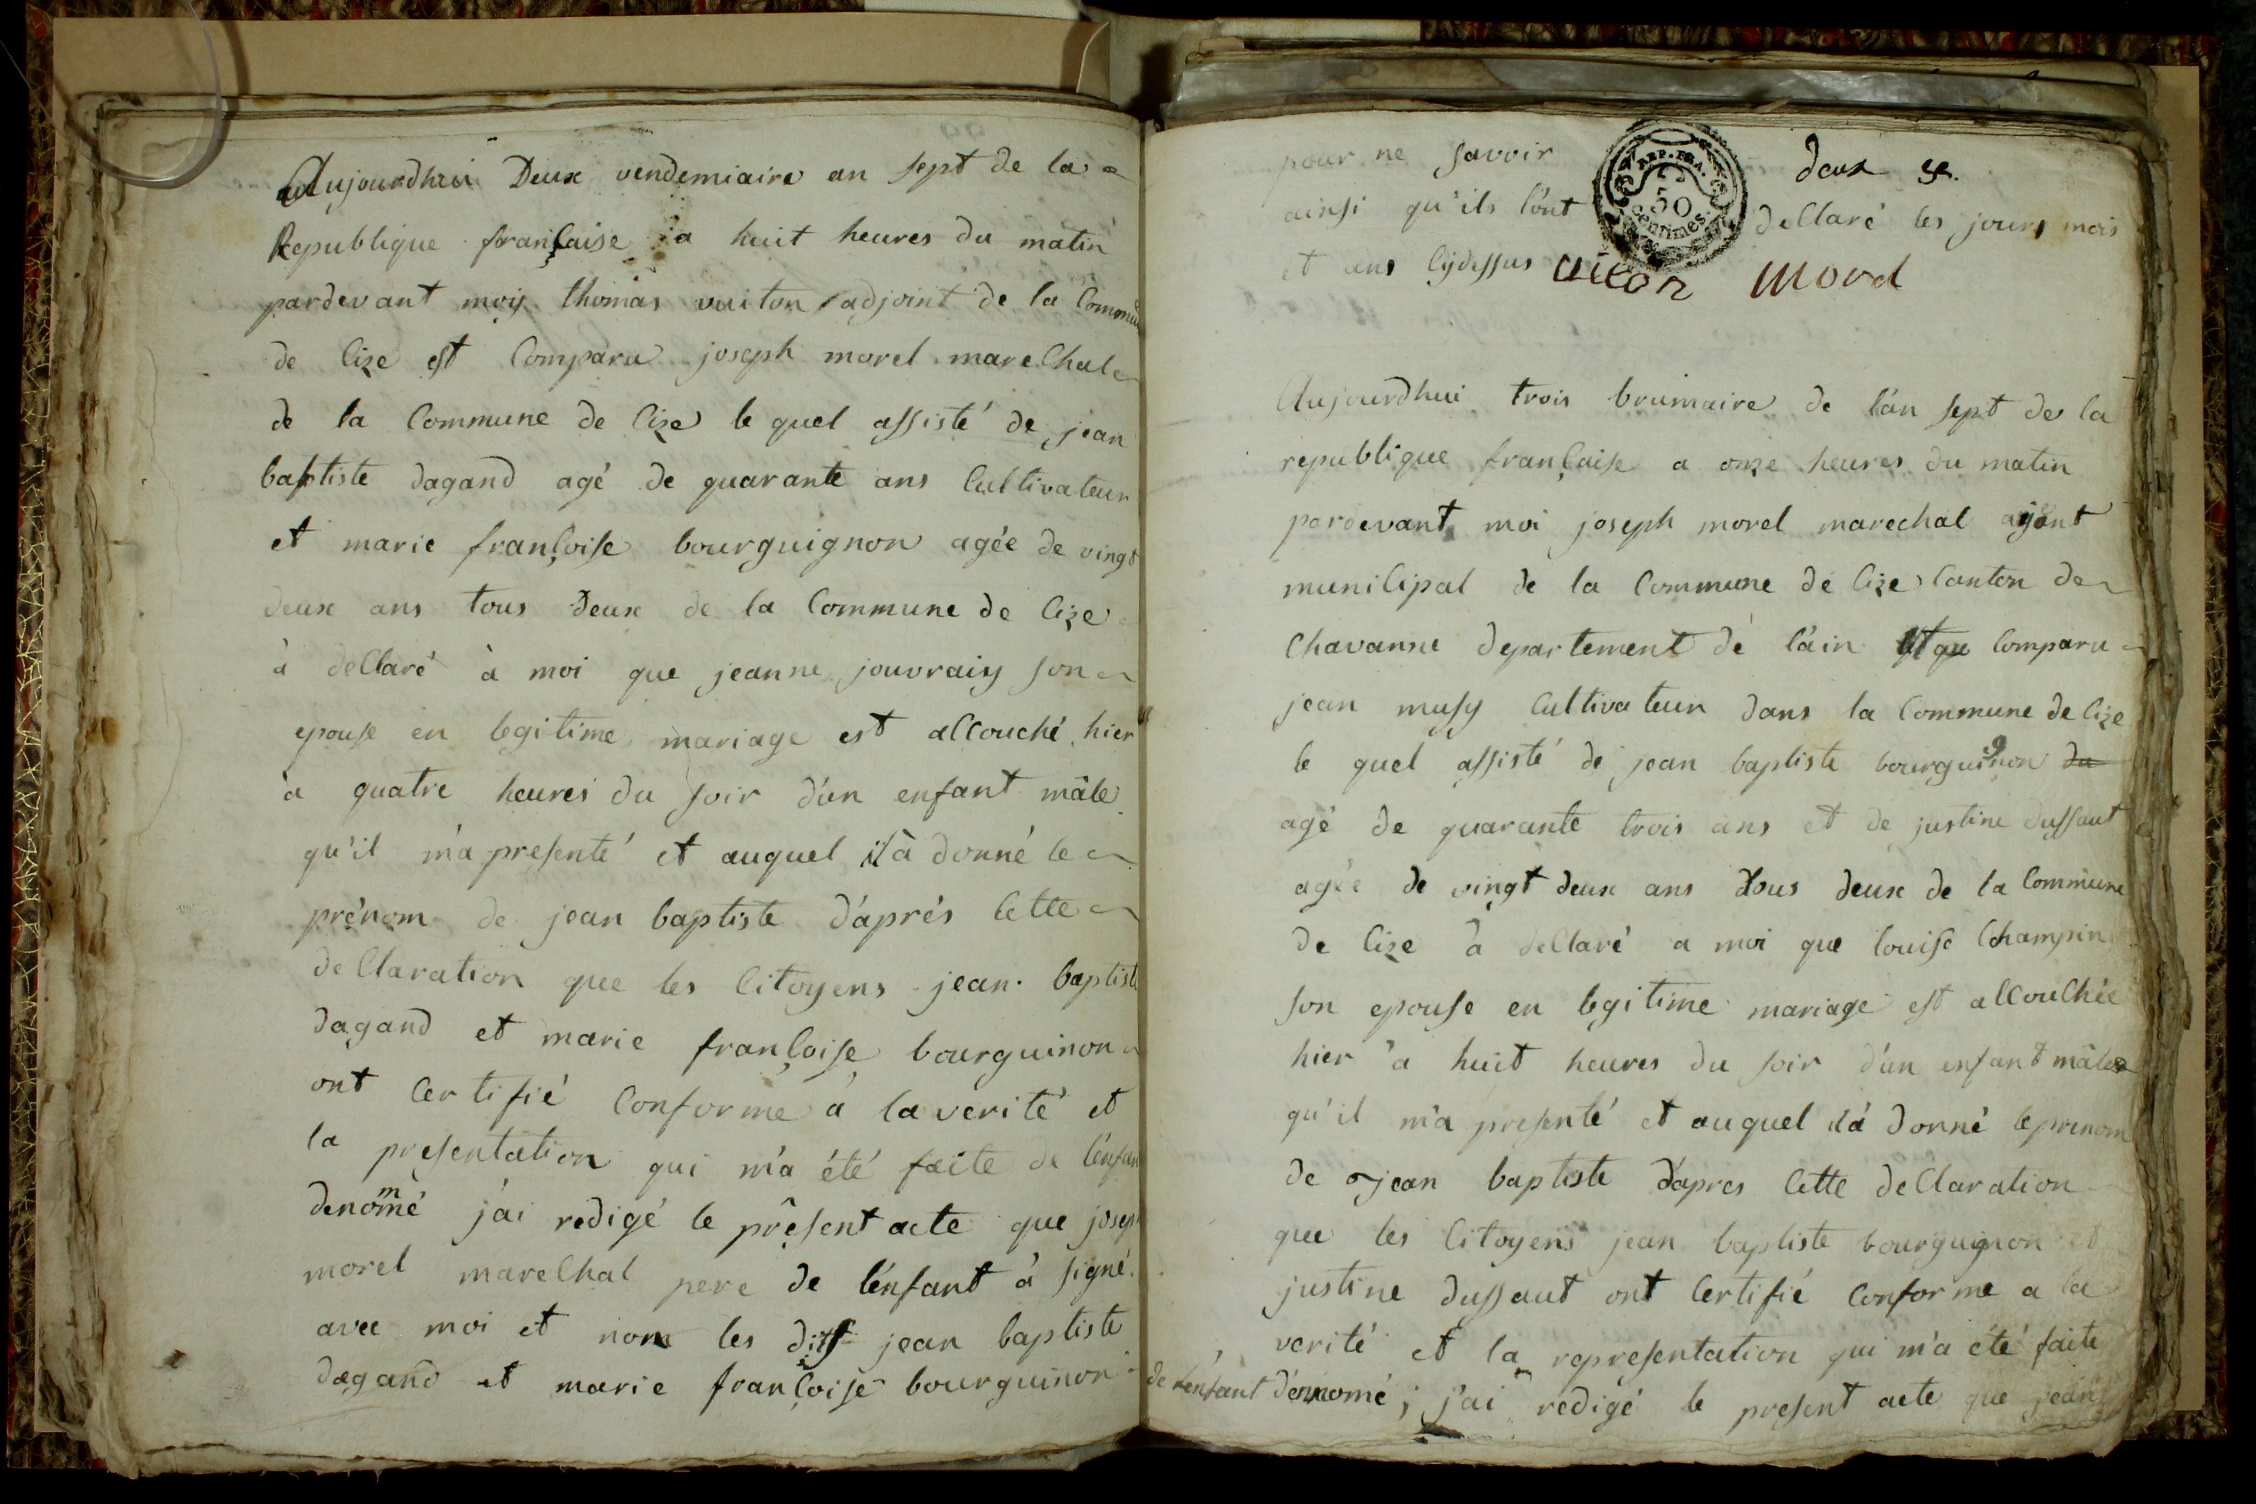 Aujourdhui Deux vendemiaire an sept de la
Republique française a huit heures du matin
pardevant moy thomas vuiton adjoint de la Commune
de Cize est Comparu joseph morel marechal
de la Commune de Cize le quel assisté de jean
baptiste dagand agé de quarante ans Cultivateur
et marie françoise bourguignon agée de vingt
deux ans tous deux de la Commune de Cize
à declaré à moi que jeanne jouvraiy son
epouse en legitime mariage est accouché hier
à quatre heures du soir d'un enfant mâle
qu'il m'a presenté et auquel il à donné le
prénom de jean baptiste d'aprés cette
declaration que les Citoyens jean baptiste
dagand et marie françoise bourguinon
ont certifié Conforme à la verité et
la presentation qui m'a été faite de l'enfant
denommé j'ai redigé le present acte que joseph
morel marechal pere de l'enfant à signé
avec moi et non les dits jean baptiste
dagand et marie françoise bourguinon
pour ne savoir
REP. FRA.
50
centimes
deux
ainsi qu'ils l'ont declaré les jours mois
et ans cydessus
morel
Aujourdhui trois brumaire de l'an sept de la
republique française a onze heures du matin
pardevant moi joseph morel marechal agent
municipal de la Commune de Cize Canton de
Chavanne departement de l'ain Comparu
jean musy Cultivateur dans la Commune de Cize
le quel assisté de jean baptiste bourguignon du
agé de quarante trois ans et de justine dussaut
agée de vingt deux ans tous deux de la Commune
de Cize à declaré a moi que louise Champin
son epouse en legitime mariage est accouchée
hier a huit heures du soir d'un enfant mâle
qu'il m'a presenté et auquel il à donné le prenom
de jean baptiste d'apres cette declaration
que les Citoyens jean baptiste bourguignon et
justine dussaut ont Certifié Conforme a la
verité et la representation qui m'a été faite
de l'enfant dénomé ; j'ai redigé le present acte que jean